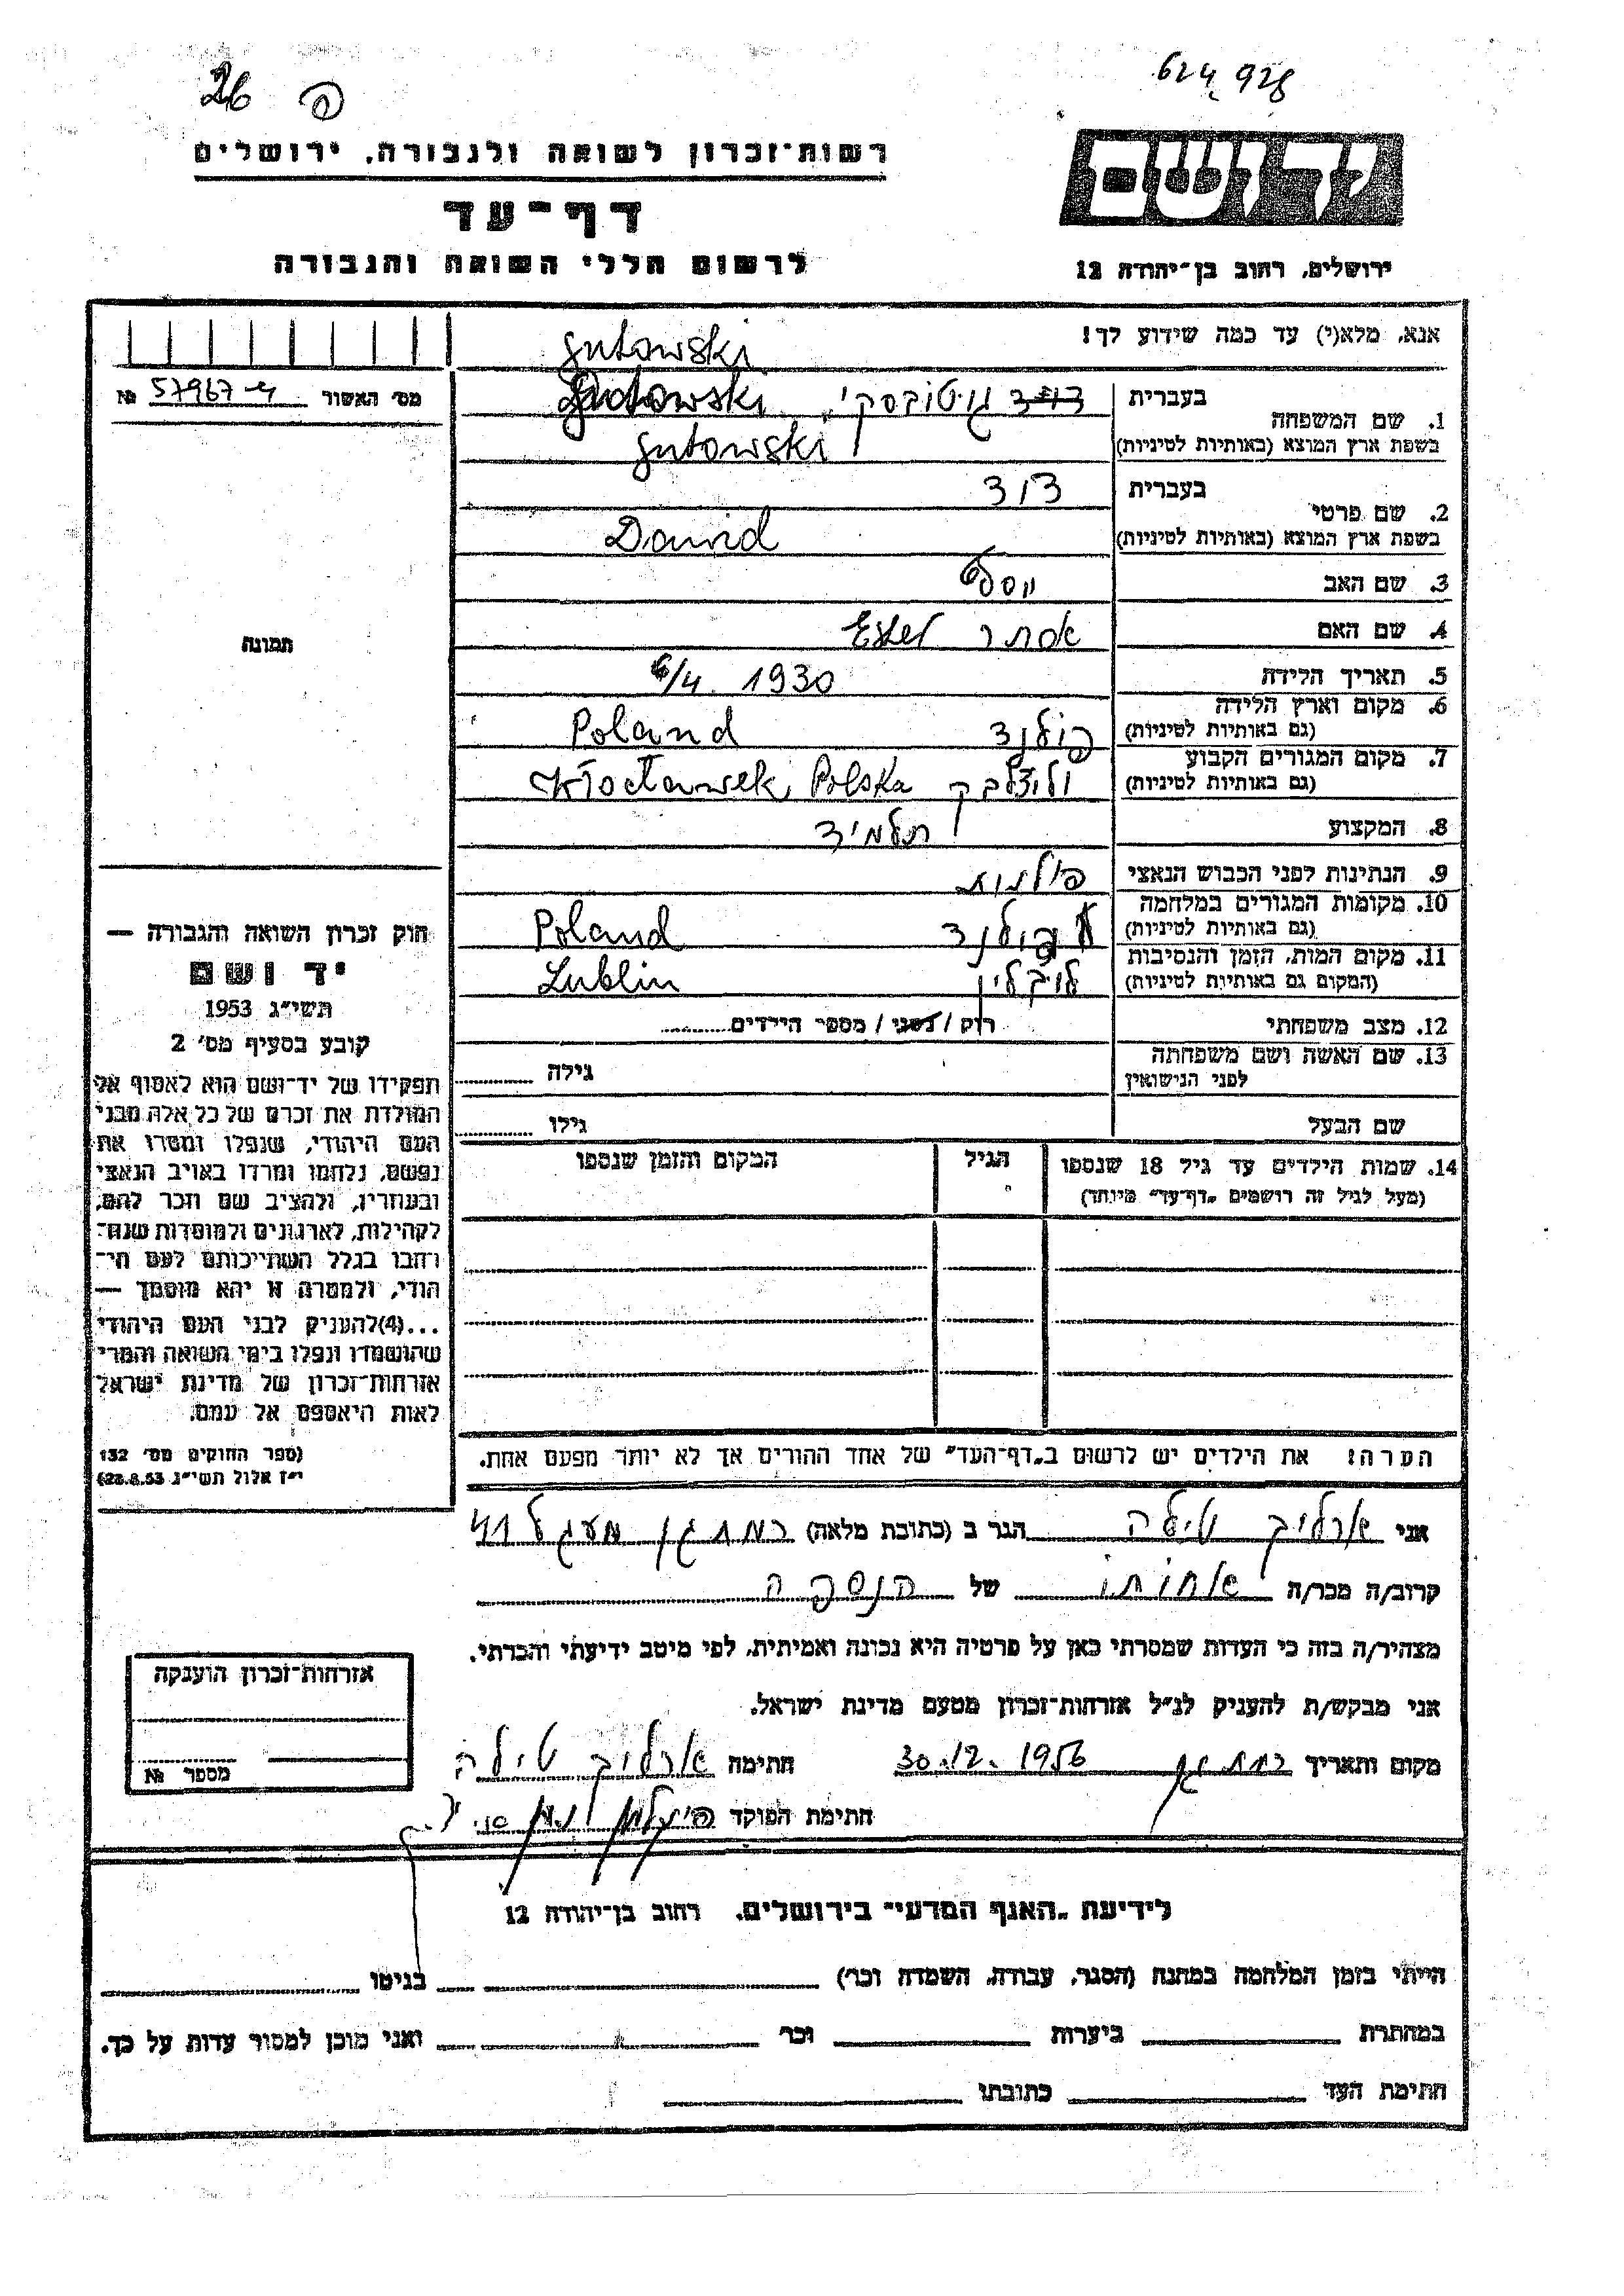 26 פ
624928
רשות־זכרון לשואה ולגבורה, ירושלים
יד ושם
דף־עד
לרשום חללי השואה והגבורה
ירושלים, רחוב בן־יהודה 12
אנא, מלא(י) עד כמה שידוע לך!
Gutowski
מס׳ האשור 57967-4 №
1. שם המשפחה
בעברית דוד גוטובסקי Gutowski
בשפת ארץ המוצא (באותיות לטיניות) Gutowski
2. שם פרטי
בעברית דוד
בשפת ארץ המוצא (באותיות לטיניות) Dawid
3. שם האב יוסף
4. שם האם אסתר Ester
5. תאריך הלידה 6/4. 1930
6. מקום וארץ הלידה
(גם באותיות לטיניות) פולנד Poland
7. מקום המגורים הקבוע
(גם באותיות לטיניות) ולוצלבק Włocławek, Polska
8. המקצוע תלמיד
9. הנתינות לפני הכבוש הנאצי פולנית
10. מקומות המגורים במלחמה
(גם באותיות לטיניות) פולנד Poland
11. מקום המות, הזמן והנסיבות
(המקום גם באותיות לטיניות) לובלין Lublin
12. מצב משפחתי רוק / נשוי / מספר הילדים
13. שם האשה ושם משפחתה
לפני הנישואין גילה
שם הבעל גילו
14. שמות הילדים עד גיל 18 שנספו הגיל המקום והזמן שנספו
(מעל לגיל זה רושמים "דף־עד" מיוחד)
הערה: את הילדים יש לרשום ב"דף־העד" של אחד ההורים אך לא יותר מפעם אחת.
תמונה
חוק זכרון השואה והגבורה —
יד ושם
תשי״ג 1953
קובע בסעיף מס׳ 2
תפקידו של יד־ושם הוא לאסוף אל
המולדת את זכרם של כל אלה מבני
העם היהודי, שנפלו ומסרו את
נפשם, נלחמו ומרדו באויב הנאצי
ובעוזריו, ולהציב שם וזכר להם,
לקהילות, לארגונים ולמוסדות שנח־
רבו בגלל השתייכותם לעם הי־
הודי, ולמטרה זו יהא מוסמך —
...(4)להעניק לבני העם היהודי
שהושמדו ונפלו בימי השואה והמרי
אזרחות־זכרון של מדינת ישראל
לאות היאספם אל עמם.
(ספר החוקים מס׳ 132
י״ז אלול תשי״ג 28.8.53)
אני ארליך טילה הגר ב (כתובת מלאה) רמת גן מעגל 41
קרוב/ה מכר/ה אחותו של הנספה
מצהיר/ה בזה כי העדות שמסרתי כאן על פרטיה היא נכונה ואמיתית, לפי מיטב ידיעתי והכרתי.
אני מבקש/ת להעניק לנ״ל אזרחות־זכרון מטעם מדינת ישראל.
מקום ותאריך רמת גן 30.12.1956 חתימה ארליך טילה
חתימת הפוקד
אזרחות־זכרון הוענקה
מספר №
לידיעת "האגף המדעי" בירושלים, רחוב בן־יהודה 12
הייתי בזמן המלחמה במחנה (הסגר, עבודה, השמדה וכר) בגיטו
במחתרת ביערות וכר ואני מוכן למסור עדות על כך.
חתימת העד כתובתו